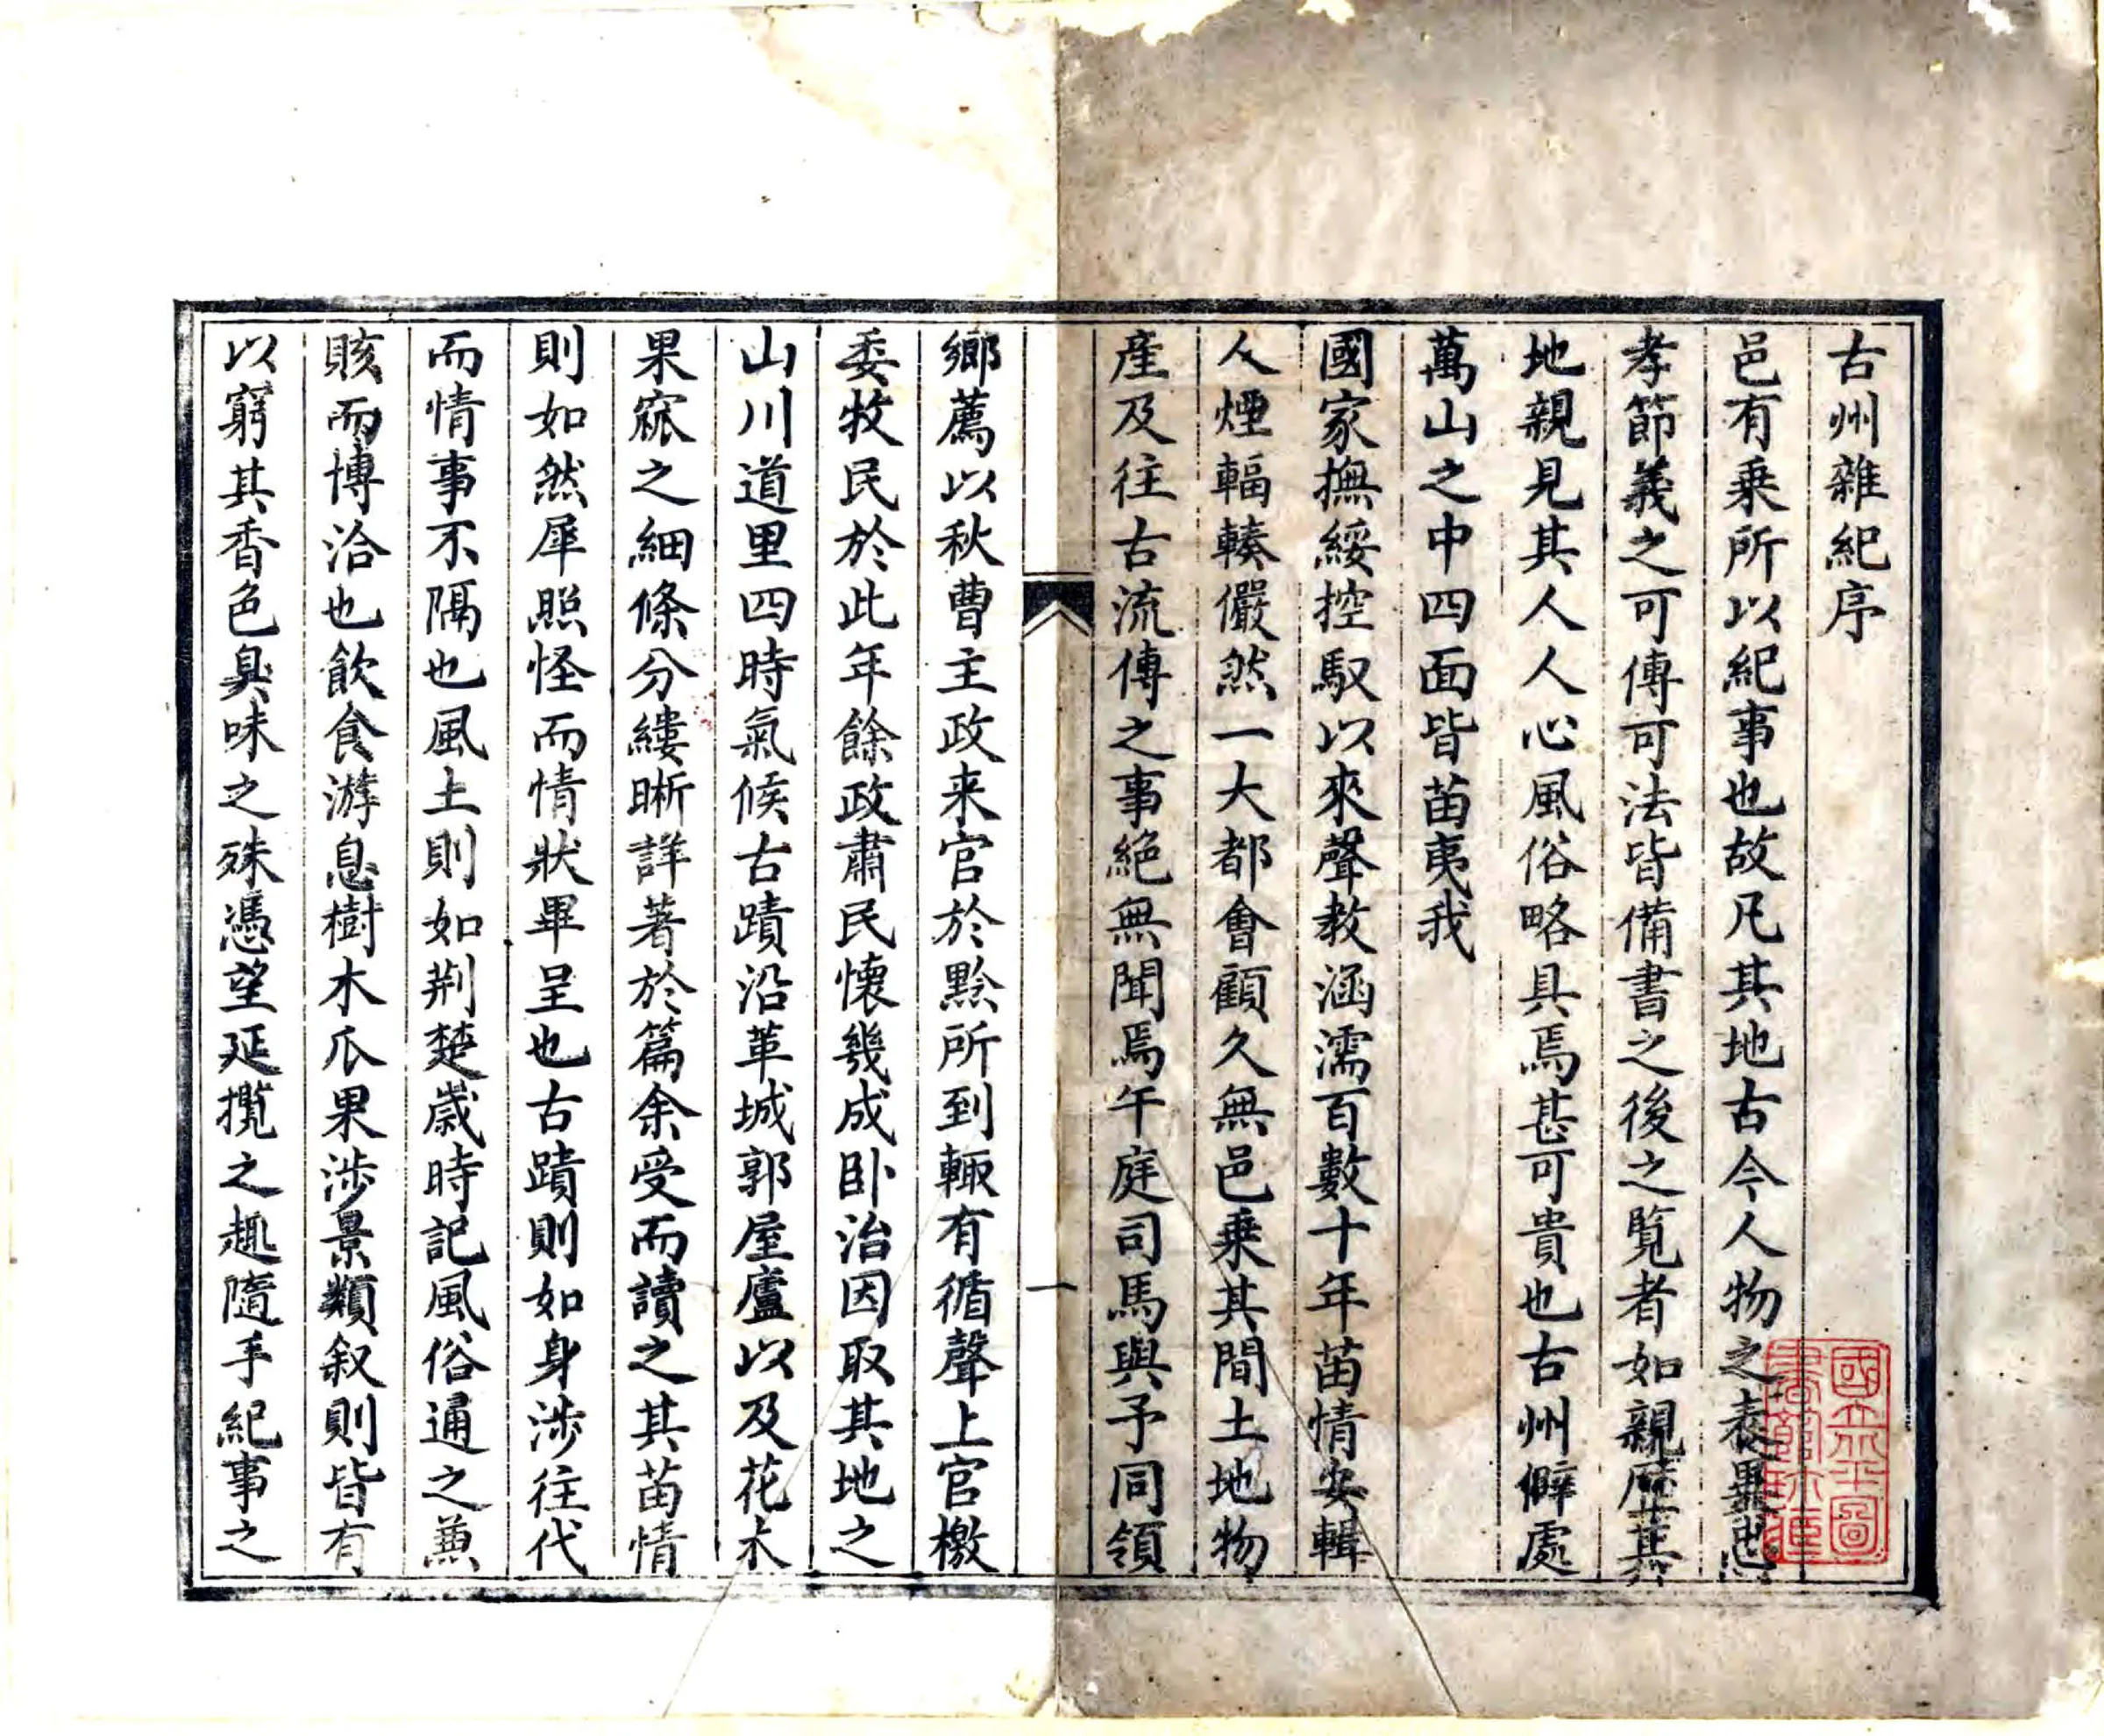 古州雜紀序
邑有乗所以紀事也故凡其地古今人物之表異忠
孝節義之可傳可法皆備書之後之覧者如親歴其
地親見其人人心風俗略具焉甚可貴也古州僻處
萬山之中四面皆苗夷我
國家撫綏控馭以來聲教涵濡百數十年苗情安輯
人煙輻輳儼然一大都會顧久無邑乗其間土地物
産及往古流傳之事絶無聞焉午庭司馬與予同領
一
鄉薦以秋曹主政来官於黔所到輙有循聲上官檄
委牧民於此年餘政肅民懷幾成卧治因取其地之
山川道里四時氣候古蹟沿革城郭屋廬以及花木
果窳之細條分縷晰詳著於篇余受而讀之其苗情
則如然犀照怪而情狀畢呈也古蹟則如身涉往代
而情事不隔也風土則如荆楚歳時記風俗通之兼
賅而博洽也飲食游息樹木瓜果涉景類叙則皆有
以窮其香色臭味之殊憑望延攬之趣隨手紀事之
國立北平圖
書館珍藏